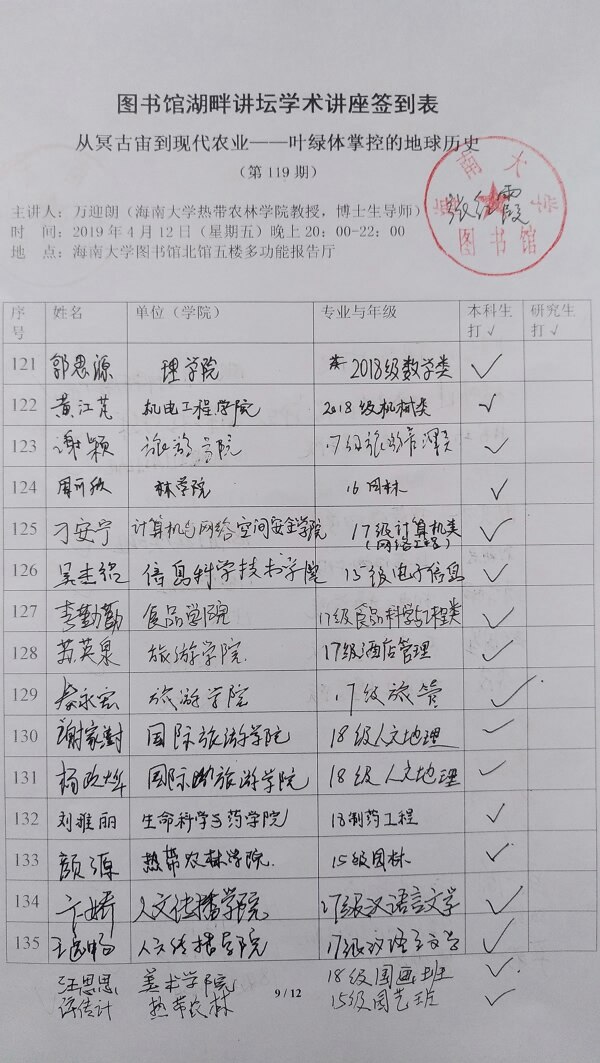 图书馆湖畔讲坛学术讲座签到表
从冥古宙到现代农业——叶绿体掌控的地球历史
（第119期）
海南大学
图书馆
张红霞
主讲人：万迎朗（海南大学热带农林学院教授，博士生导师）
时　间：2019年4月12日（星期五）晚上20：00-22：00
地　点：海南大学图书馆北馆五楼多功能报告厅
序号 姓名 单位（学院） 专业与年级 本科生打√ 研究生打√
121 郭思源 理学院 2018级数学类 √
122 黄江芃 机电工程学院 2018级机械类 √
123 谢颖 旅游学院 17级旅游管理类 √
124 林学院 16园林 √
125 刁安宁 计算机与网络空间安全学院 17级计算机类（网络工程） √
126 吴圭铭 信息科学技术学院 15级电子信息 √
127 李勤勤 食品学院 17级食品科学与工程类 √
128 苏英泉 旅游学院. 17级酒店管理 √
129 秦永宏 旅游学院 17级旅管 √
130 谢家树 国际旅游学院 18级人文地理 √
131 杨欣烨 国际旅游学院 18级人文地理 √
132 刘雅丽 生命科学与药学院 18制药工程 √
133 颜源 热带农林学院. 15级园林 √
134 卞娇 人文传播学院 17级汉语言文学 √
135 王逸畅 人文传播学院 17级汉语言文学 √
汪思思 美术学院 18级国画班 √
许传计 热带农林 15级园艺班 √
9 / 12